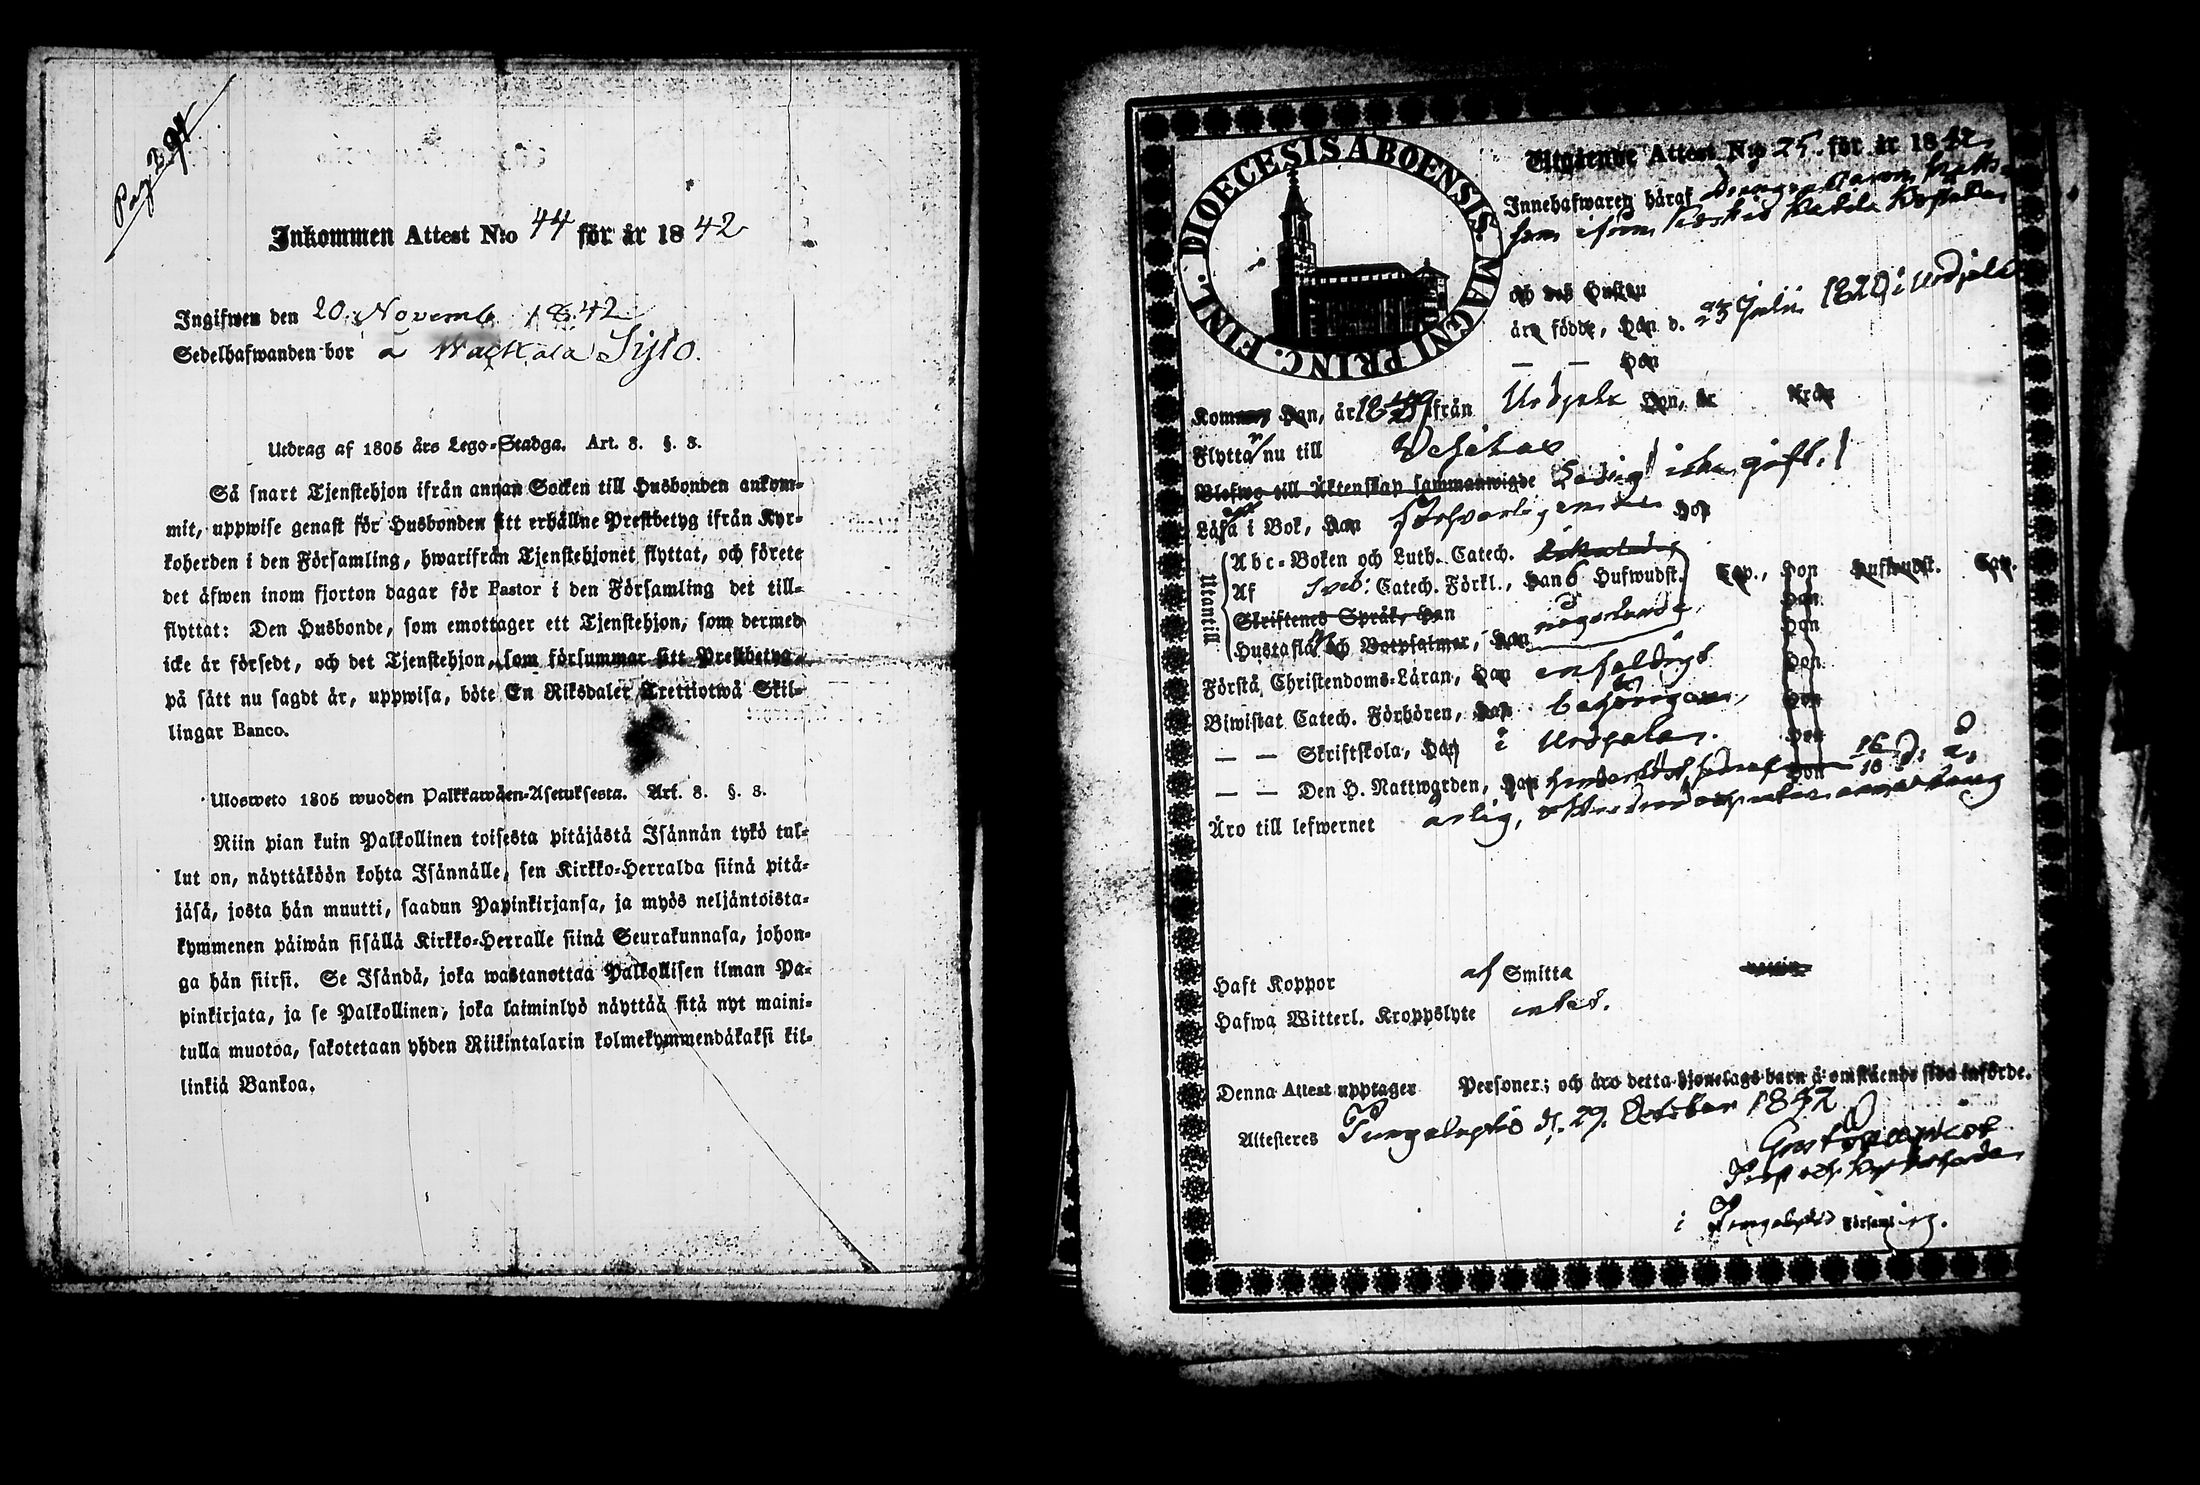 Pag 294
Inkommen Attest N:o 44 för år 1842
Ingifwen den 20. Novemb 1842
Sedelhafwanden bor a Wachala Sjslo.
Utdrag af 1805 års Lego-Stadga. Art. 8. §. 8.
Så snart Tjenstehjon ifrån annan Socken till Husbonden ankom-
mit, uppwise genast för Husbonden sitt erhållne Prestbetyg ifrån Kyr-
koherden i den Församling, hwarifrån Tjenstehjonet flyttat, och förete
det äfwen inom fjorton dagar för Pastor i den Församling det till-
flyttat: Den Husbonde, som emottager ett Tjenstehjon, som dermed
icke är försedt, och det Tjenstehjon, som försummar sitt Prestbetyg,
på sätt nu sagdt är, uppwisa, böte En Riksdaler Trettiotwå Skil-
lingar Banco.
Ulosweto 1805 wuoden Palkkawäen-Asetuksesta. Art. 8. §. 8.
Niin pian kuin Palkollinen toisesta pitäjästä Isännän tykö tul-
lut on, näyttäköön kohta Isännälle, sen Kirkko-Herralda siinä pitä-
jäsä, josta hän muutti, saadun Papinkirjansa, ja myös neljäntoista-
kymmenen päiwän sisällä Kirkko-Herralle siinä Seurakunnasa, johon-
ga hän siirsi. Se Isändä, joka wastanottaa Palkollisen ilman Pa-
pinkirjata, ja se Palkollinen, joka laiminlyö näyttää sitä nyt maini-
tulla muotoa, sakotetaan yhden Riikintalarin kolmekymmendäkaksi kil-
linkiä Bankoa.
DIOECESIS ABOENSIS MAGNI PRINC. FINL.
Utgående Attest N:o 25. för år 1842
Innehafwaren häraf drängen Aaron
som
och des Hustru
äro födde, Han d. 23 Julii 1820 i Urdjala
— — Hon
Kommen Han, år ifrån Urdjala Hon, år från
Flytta nu till Wesilax
Blefwo till Äktenskap sammanwigde Ledig icke gift.
Läsa i Bok, Han försvarligen Hon
Utantill
Abc-Boken och Luth. Catech.
Af Sveb: Catech. Förkl., Han 6 Hufwudst. Cap., Hon Hufwudst. Cap.
Skriftenes Språk, Han Hon
Hustaflan och Botpsalmer, Han någorlunda Hon
Förstå Christendoms-Läran, Han enfaldigt Hon
Biwistat Catech. Förhören, Han behörigen, Hon
— — Skriftskola, Han i Urdjala. Hon
— — Den H. Nattwarden, Han Hon 16/10 d. å.
Äro till lefwernet ärlig,
Haft Koppor af Smitta
Hafwa Witterl. Kroppslyte intet.
Denna Attest upptager Personer; och äro detta hjonelags barn å omstående sida införde.
Attesteres Pungalaytio d. 29. October 1842
Prost och Kyrkoherde
i Pungalaytio Församling.